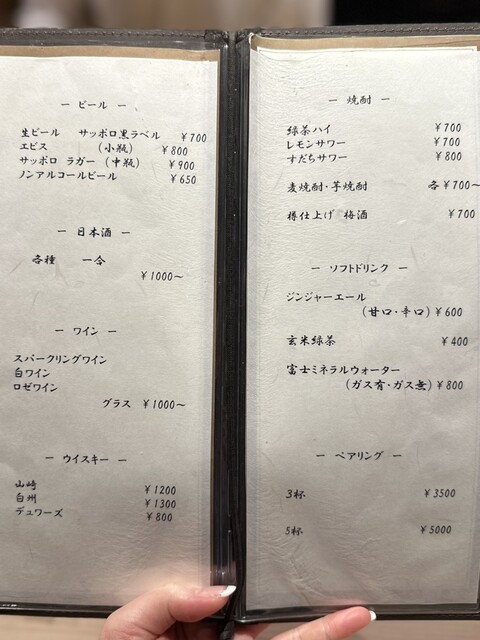 ー ビール ー
生ビール サッポロ黒ラベル ¥700
エビス (小瓶) ¥800
サッポロ ラガー (中瓶) ¥900
ノンアルコールビール ¥650
ー 日本酒 ー
各種 一合
¥1000〜
ー ワイン ー
スパークリングワイン
白ワイン
ロゼワイン
グラス ¥1000〜
ー ウイスキー ー
山崎 ¥1200
白州 ¥1300
デュワーズ ¥800
ー 焼酎 ー
緑茶ハイ ¥700
レモンサワー ¥700
すだちサワー ¥800
麦焼酎・芋焼酎 各¥700〜
樽仕上げ 梅酒 ¥700
ー ソフトドリンク ー
ジンジャーエール
(甘口・辛口) ¥600
玄米緑茶 ¥400
富士ミネラルウォーター
(ガス有・ガス無) ¥800
ー ペアリング ー
3杯 ¥3500
5杯 ¥5000